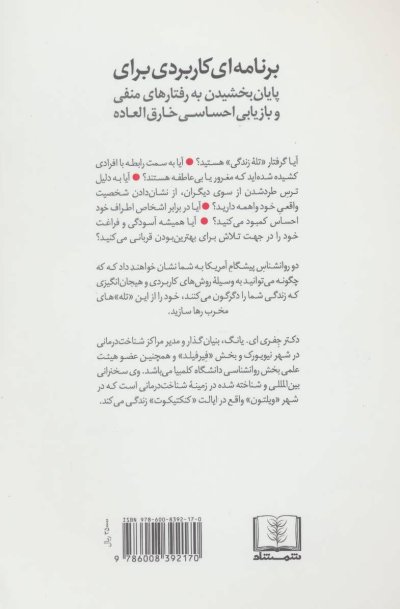 برنامه‌ای کاربردی برای
پایان‌بخشیدن به رفتارهای منفی
و بازیابی احساسی خارق‌العاده
آیا گرفتار «تلهٔ زندگی» هستید؟ ● آیا به سمت رابطه با افرادی
کشیده شده‌اید که مغرور یا بی‌عاطفه هستند؟ ● آیا به دلیل
ترس طردشدن از سوی دیگران، از نشان‌دادن شخصیت
واقعی خود واهمه دارید؟ ● آیا در برابر اشخاص اطراف خود
احساس کمبود می‌کنید؟ ● آیا همیشه آسودگی و فراغت
خود را در جهت تلاش برای بهترین‌بودن قربانی می‌کنید؟
دو روانشناس پیشگام آمریکا به شما نشان خواهند داد که که
چگونه می‌توانید به وسیلهٔ روش‌های کاربردی و هیجان‌انگیزی
که زندگی شما را دگرگون می‌کنند، خود را از این «تله»های
مخرب رها سازید.
دکتر جفری ای. یانگ، بنیان گذار و مدیر مراکز شناخت‌درمانی
در شهر نیویورک و بخش «فِیرفیلد» و همچنین عضو هیئت
علمی بخش روانشناسی دانشگاه کلمبیا می‌باشد. وی سخنرانی
بین‌المللی و شناخته شده در زمینهٔ شناخت‌درمانی است که در
شهر «ویلتون» واقع در ایالت «کنکتیکوت» زندگی می‌کند.
ISBN 978-600-8392-17-0
9 786008 392170
ریال
شمشاد